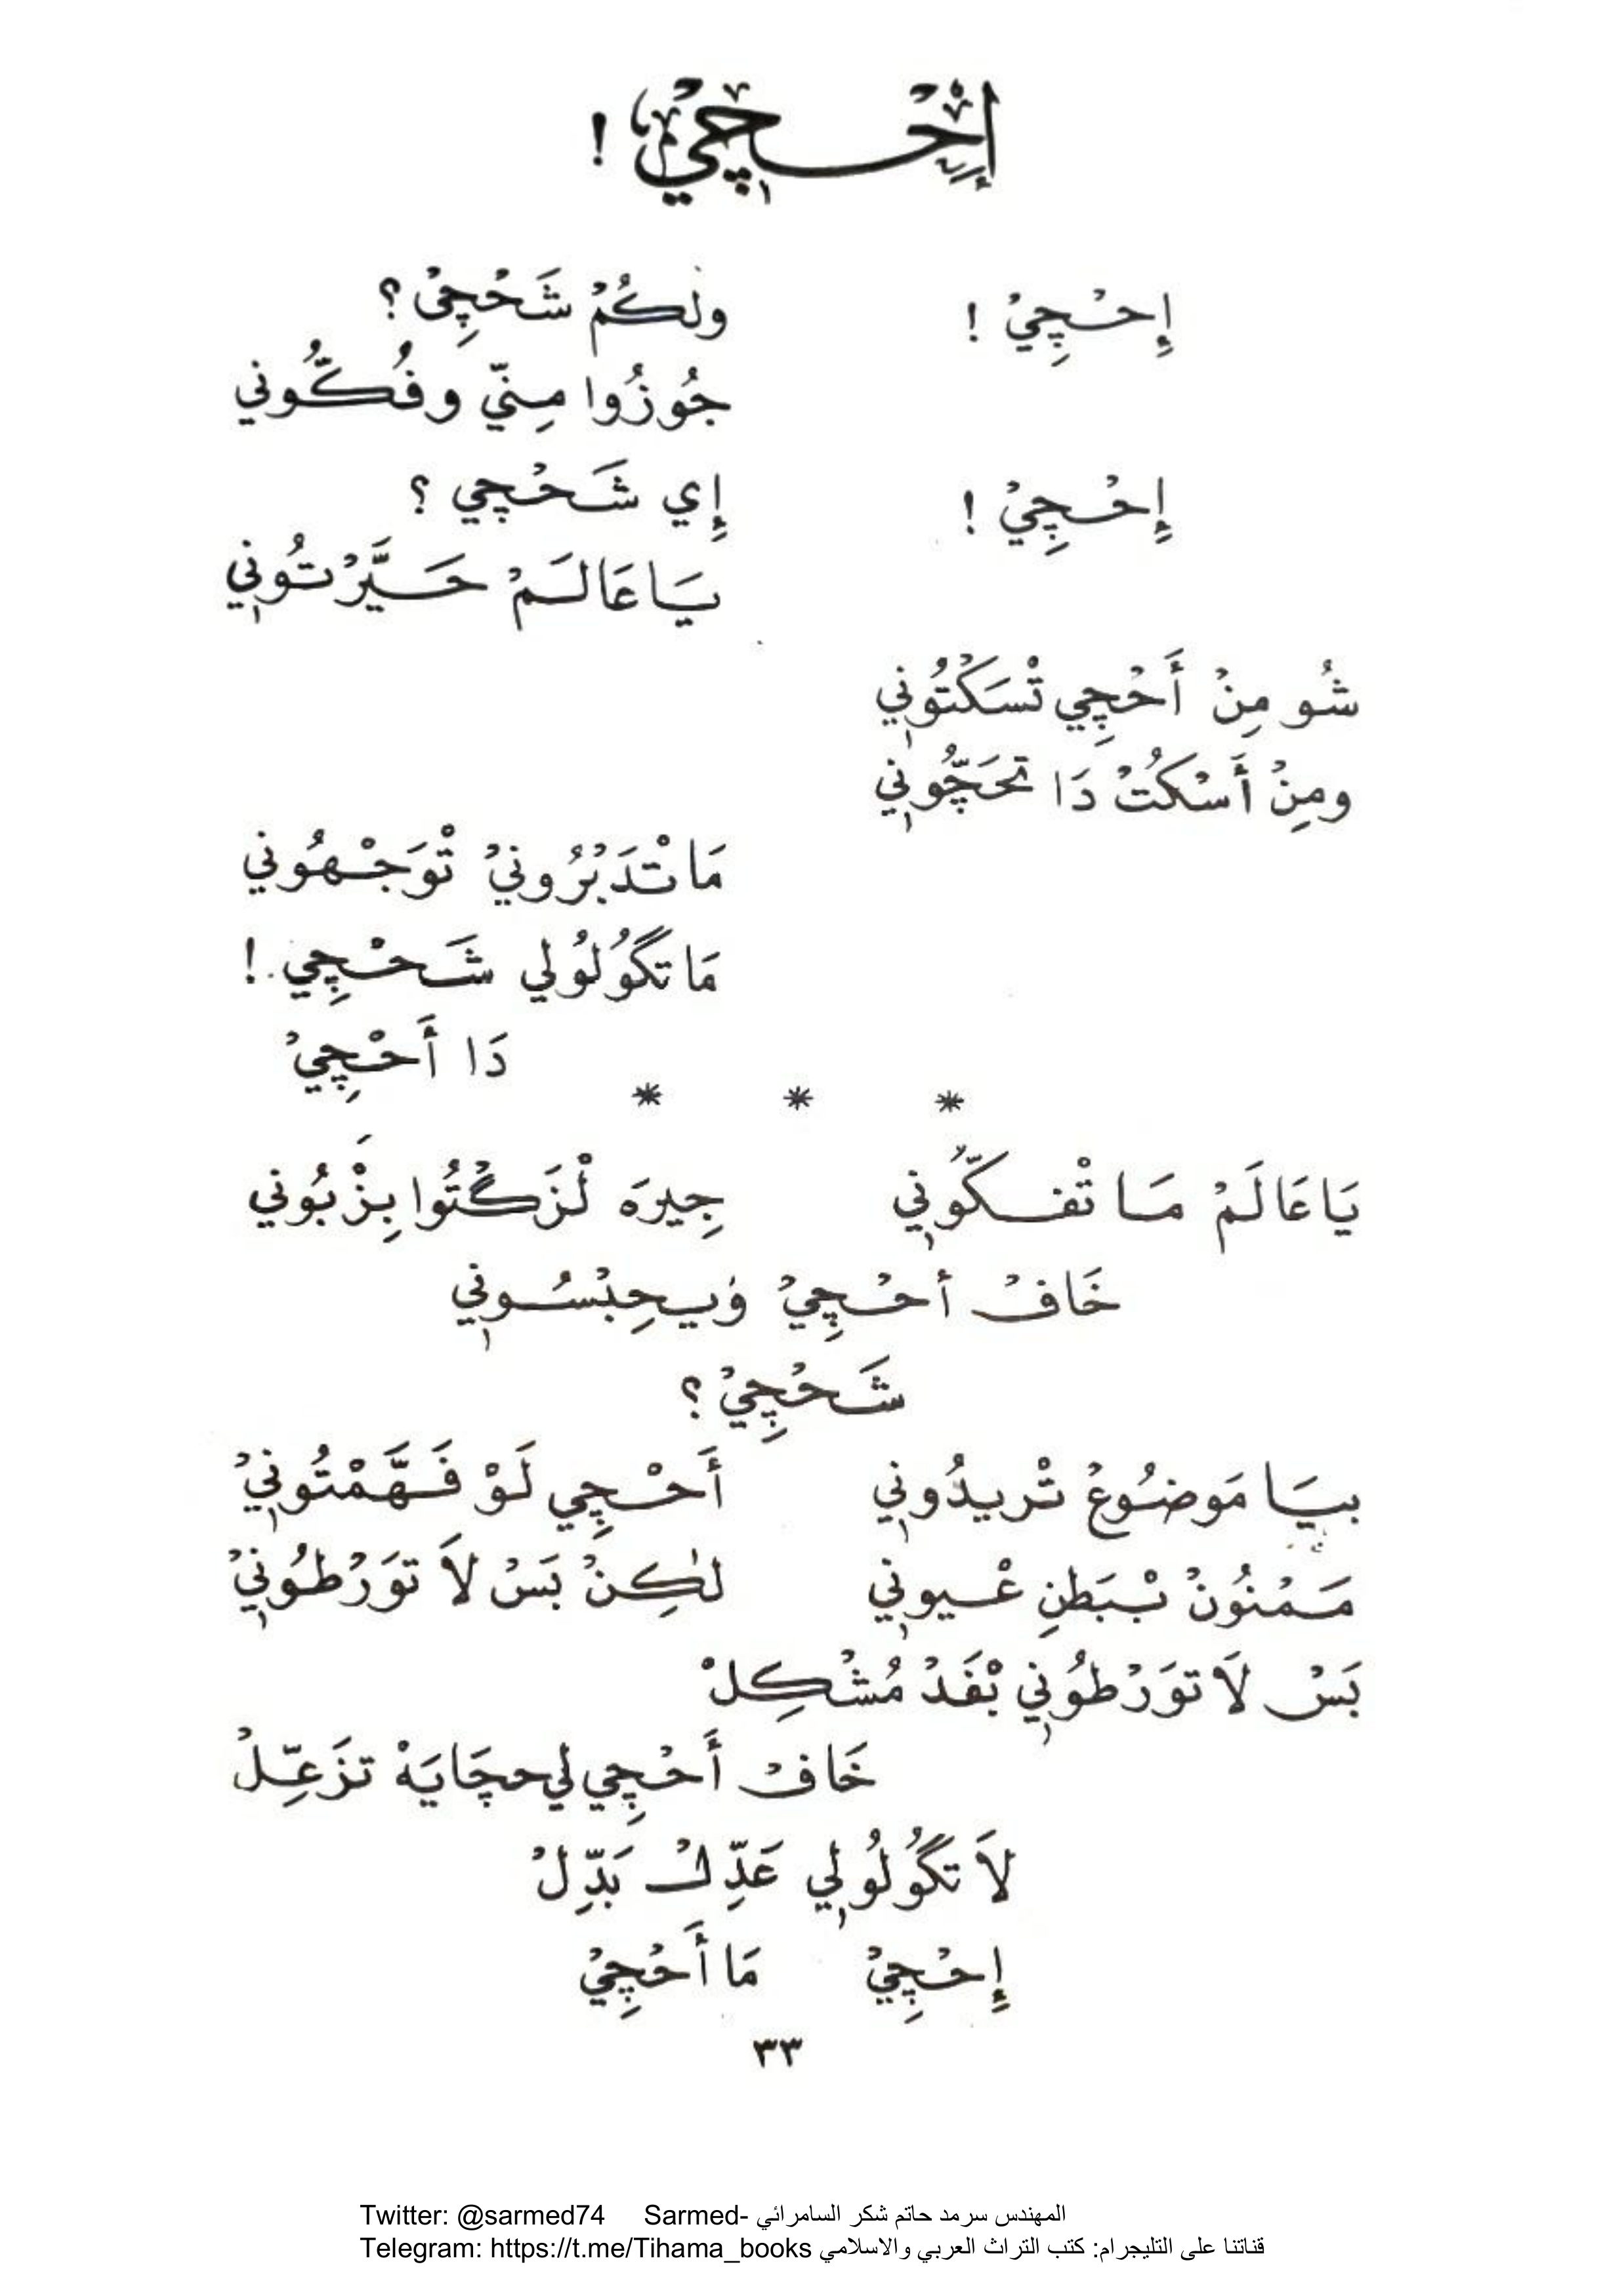 إِحْچِيْ !
إِحْچِيْ ! ولكُمْ شَحْچِيْ ؟
جُوزُوا مِنّي وفُكُّوني
إِحْچِيْ ! إِي شَحْچِي ؟
يَاعَالَمْ حَيَّرْتُونِي
شُو مِنْ أَحْچِي تْسَكْتُونِي
ومِنْ أَسْكُتْ دَا تحَچُّونِي
مَاتْدَبْرُونيْ تْوَجْهُوني
مَا تگُولُولي شَحْچِي !
دَا أَحْچِيْ
* * *
يَاعَالَمْ مَا تْفكّونِي جِيرَه لْزَگْتُوا بِزْبُوني
خَافْ أحْچِيْ وْيحِبْسُونِي
شَحْچِيْ ؟
بيَا مَوضُوعْ تْريدُونِي أَحْچِي لَوْ فَهَّمْتُونِيْ
مَمْنُونْ بْبَطنِ عْيونِي لٰكِنْ بَسْ لاَ تَوَرْطُونِيْ
بَسْ لاَ تَوَرْطُونِي بْفَدْ مُشْكِلْ
خَافْ أَحْچِي لي حچَايَهْ تزَعِّلْ
لاَ تگُولُولِي عَدِّلْ بَدِّلْ
إِحْچِيْ مَا أَحْچِيْ
٣٣
Twitter: @sarmed74 Sarmed- المهندس سرمد حاتم شكر السامرائي
Telegram: https://t.me/Tihama_books قناتنا على التليجرام: كتب التراث العربي والاسلامي